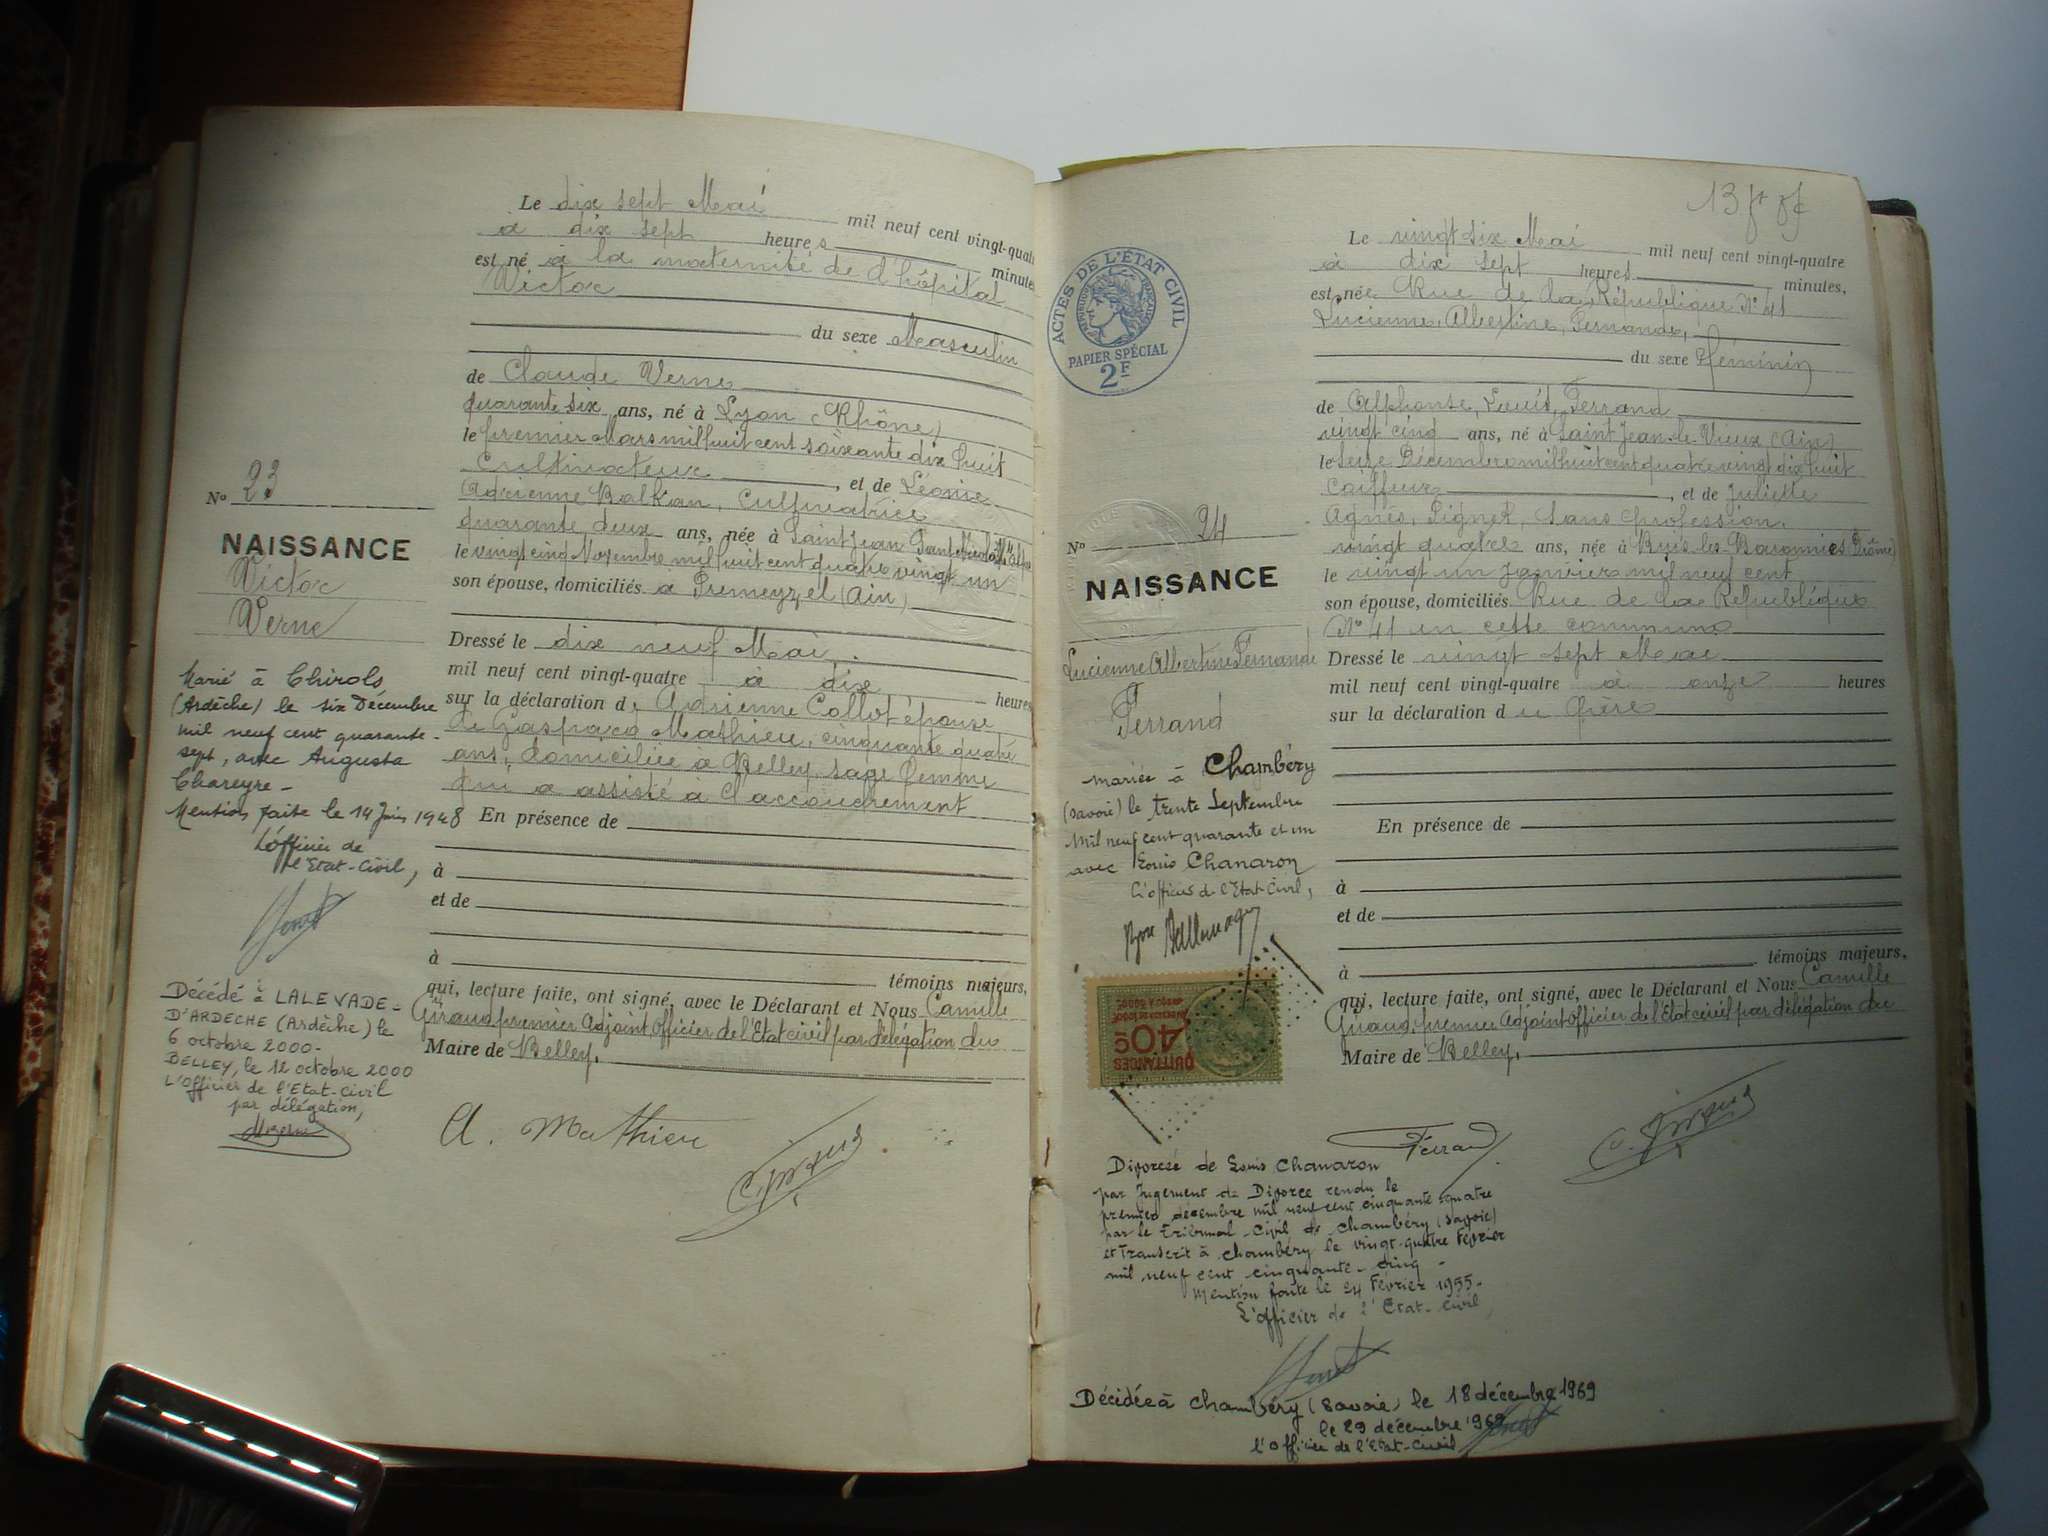 Le dix sept Mai mil neuf cent vingt-quat
à dix sept heures minutes
est né à la maternité de l'hôpital
Victor
du sexe Masculin
de Claude Verne
quarante six ans, né à Lyon (Rhône)
le premier Mars mil huit cent soixante dix huit
Cultivateur, et de Léonie
Adrienne Balkan, Cultivatrice
quarante deux ans, née à Saint Jean
le vingt cinq Novembre mil huit cent quatre vingt un
son épouse, domiciliés à Premeyzel (Ain)
Dressé le dix neuf Mai
mil neuf cent vingt-quatre à dix heures
sur la déclaration d Adrienne Collot épouse
de Gaspard Mathieu, cinquante quatre
ans, domiciliée à Belley, sage femme
qui a assisté à l'accouchement
En présence de
à
et de
à témoins majeurs,
qui, lecture faite, ont signé, avec le Déclarant et Nous Camille
Giraud, premier Adjoint, Officier de l'Etat civil par délégation du
Maire de Belley.
A. Mathieu
C. Giraud
N° 23
NAISSANCE
Victor
Verne
Marié à Chirols
(Ardèche) le six Décembre
mil neuf cent quarante-
sept, avec Augusta
Chareyre -
Mention faite le 14 Juin 1948
L'officier de
l'Etat-Civil,
Décédé à LALEVADE-
D'ARDECHE (Ardèche) le
6 octobre 2000-
BELLEY, le 12 octobre 2000
L'Officier de l'Etat-Civil
par délégation,
13
ACTES DE L'ÉTAT CIVIL
RÉPUBLIQUE FRANÇAISE
PAPIER SPÉCIAL
2F
Le vingt six Mai mil neuf cent vingt-quatre
à dix sept heures minutes,
est née Rue de la République N° 41
Lucienne, Albertine, Fernande,
du sexe féminin
de Alphonse, Louis, Ferrand
vingt cinq ans, né à Saint Jean-le-Vieux (Ain)
le seize Décembre mil huit cent quatre vingt dix huit
Coiffeur, et de Juliette
Agnès, Pignet, sans profession.
vingt quatre ans, née à Buis les Baronnies (Drôme)
le vingt un Janvier mil neuf cent
son épouse, domiciliés Rue de la République
N° 41 en cette commune
Dressé le vingt sept Mai
mil neuf cent vingt-quatre à onze heures
sur la déclaration du Père
En présence de
à
et de
à témoins majeurs,
qui, lecture faite, ont signé, avec le Déclarant et Nous Camille
Giraud, premier Adjoint Officier de l'Etat civil par délégation du
Maire de Belley.
Ferrand
C. Giraud
N° 24
NAISSANCE
Lucienne Albertine Fernande
Ferrand
mariée à Chambéry
(Savoie) le trente Septembre
Mil neuf cent quarante et un
avec Louis Chanaron
L'officier de l'Etat-Civil,
QUITTANCES
40c
Divorcée de Louis Chanaron
par Jugement de Divorce rendu le
premier décembre mil neuf cent cinquante quatre
par le Tribunal Civil de Chambéry (Savoie)
et Transcrit à Chambéry le vingt-quatre Février
mil neuf cent cinquante-cinq -
Mention faite le 24 Février 1955-
L'officier de l'Etat-Civil
Décédée à Chambéry (Savoie) le 18 décembre 1969
le 29 décembre 1969
l'Officier de l'Etat-Civil